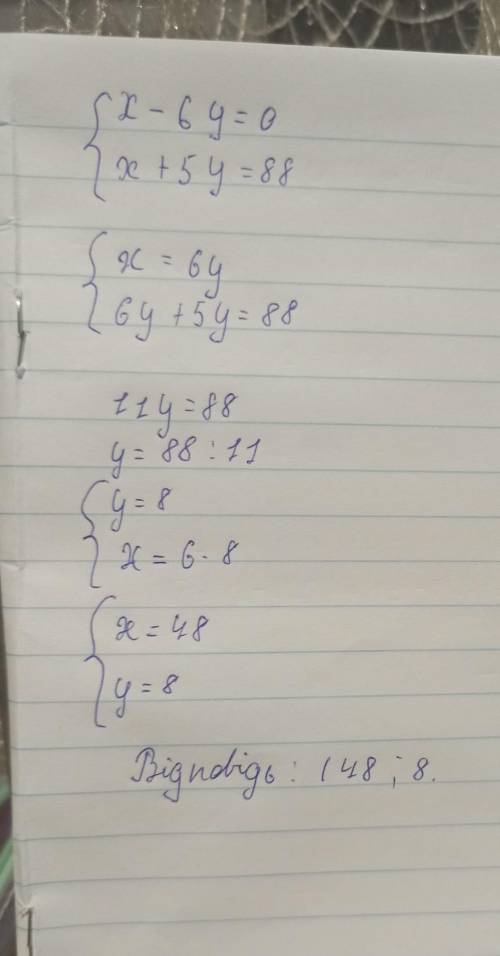 x - 6y = 0
x + 5y = 88
x = 6y
6y + 5y = 88
11y = 88
y = 88 : 11
y = 8
x = 6 · 8
x = 48
y = 8
Відповідь: (48 ; 8.